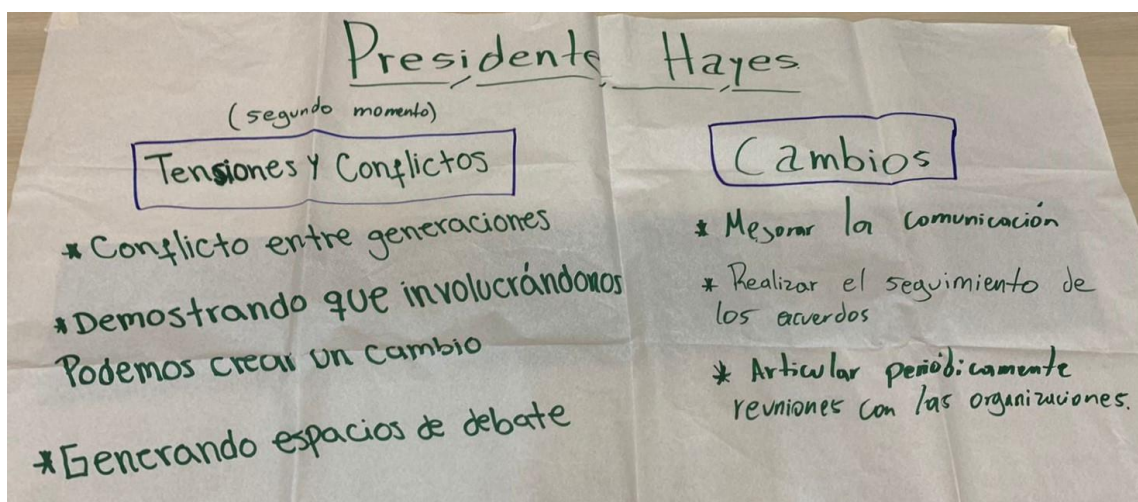 Presidente Hayes
(segundo momento)
Tensiones y Conflictos
* Conflicto entre generaciones
* Demostrando que involucrándonos
Podemos crear un cambio
* Generando espacios de debate
Cambios
* Mejorar la comunicación
* Realizar el seguimiento de
los acuerdos
* Articular periódicamente
reuniones con las organizaciones.